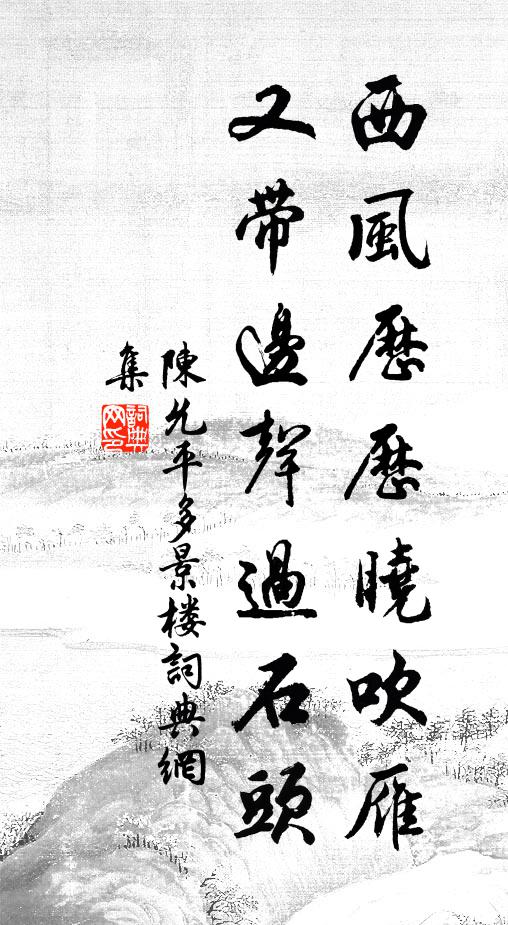 西風歷歷曉吹雁
又帶邊聲過石頭
陳允平多景楼詞典網
集
詞典网印